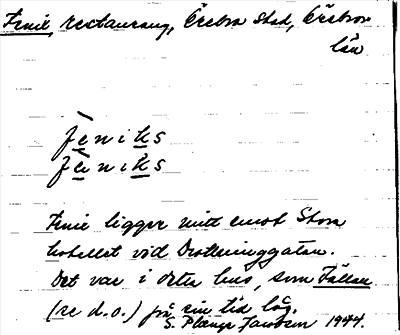 Fenix, restaurang, Örebro stad, Örebro
län
fèniks
fèniks
Fenix ligger mitt emot Stora
hotellet vid Drottninggatan.
Det var i detta hus, som Fällan
(se d.o.) på sin tid låg.
S. 1944.